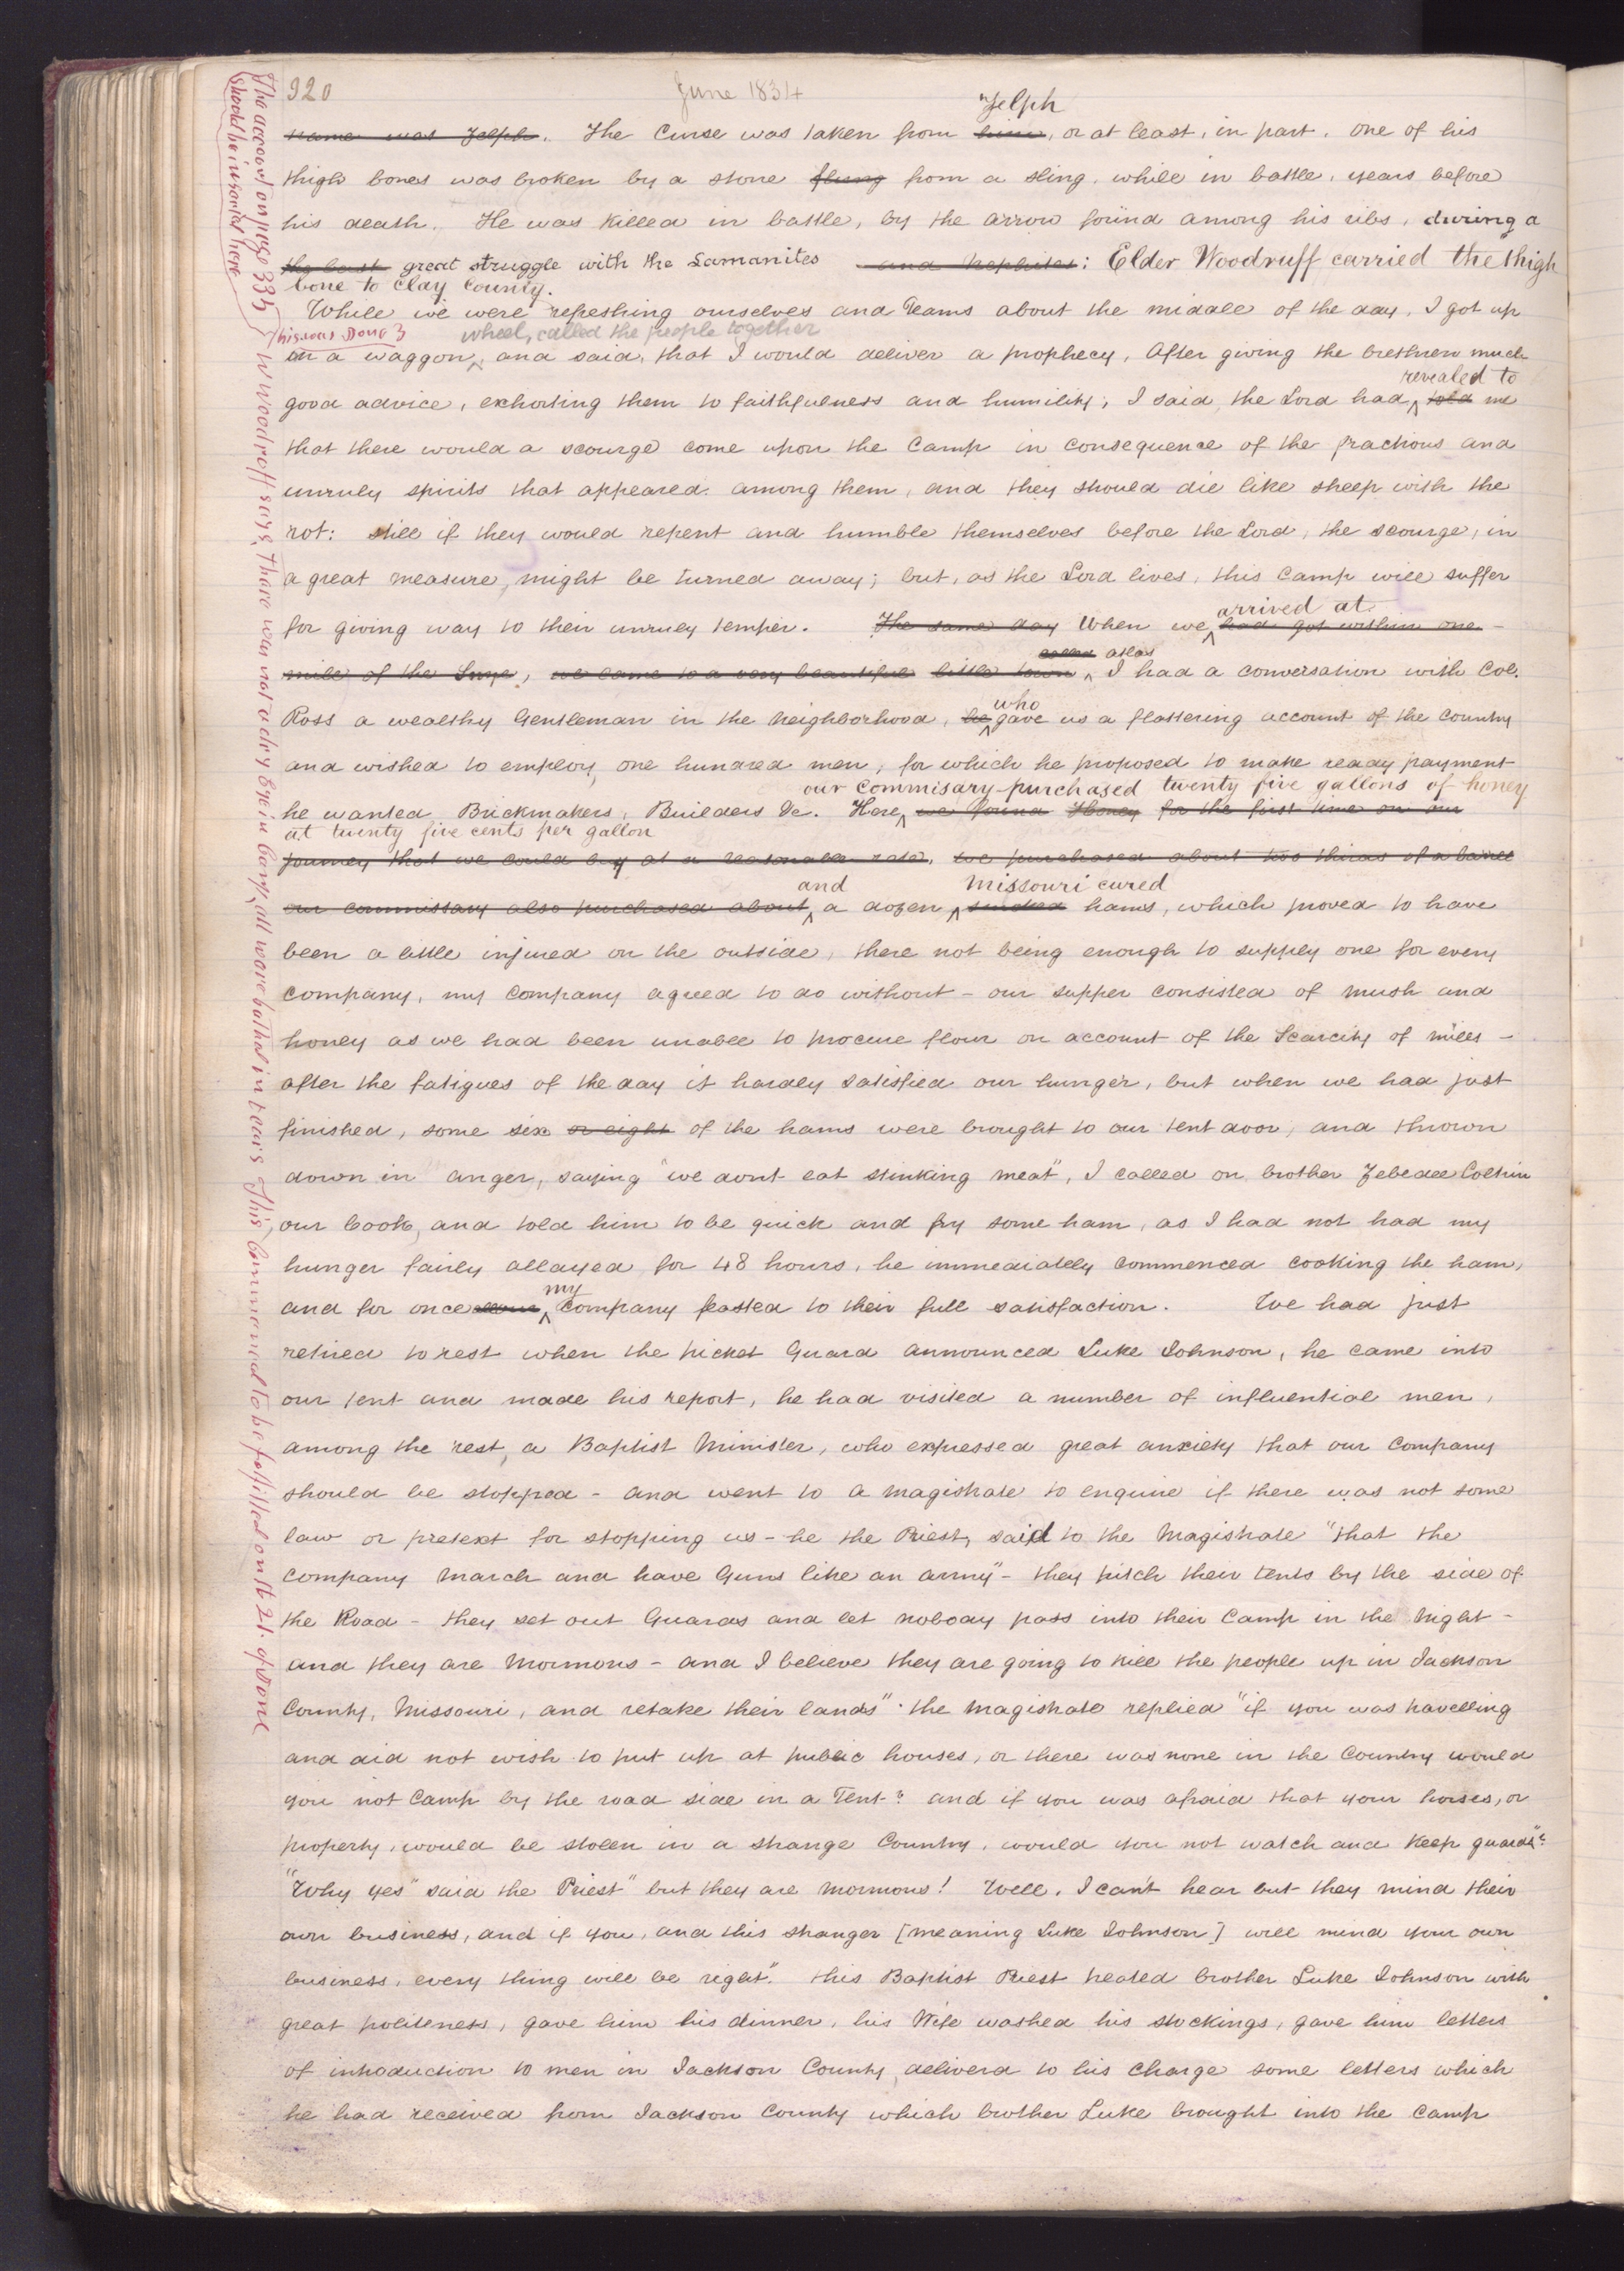 320
June 1834
"Zelph
name was Zelph. The Curse was taken from him, or at least, in part, one of his
thigh bones was broken by a stone flung from a sling, while in battle, years before
his death. He was killed in battle, by the arrow found among his ribs, during a
the last great struggle with the Lamanites and Nephites: Elder Woodruff carried the thigh
bone to Clay County.
While we were refreshing ourselves and Teams about the middle of the day, I got up
wheel, called the people together
on a waggon, and said, that I would deliver a prophecy. After giving the brethren much
revealed to
good advice, exhorting them to faithfulness and humility, I said, the Lord had told me
that there would a scourge come upon the Camp in consequence of the fractious and
unruly spirits that appeared among them, and they should die like sheep with the
rot: still if they would repent and humble themselves before the Lord, the scourge, in
a great measure, might be turned away; but, as the Lord lives, this Camp will suffer
arrived at
for giving way to their unruly temper. The same day When we had got within one
called atlas
mile of the Snye, we came to a very beautiful little town, I had a conversation with Col.
who
Ross a wealthy Gentleman in the Neighborhood, he gave us a flattering account of the Country
and wished to employ one hundred men, for which he proposed to make ready payment
our Commisary purchased twenty five gallons of honey
he wanted Brickmakers, Builders &c. Here we found Honey for the first time on our
at twenty five cents per gallon
journey that we could buy at a reasonable rate, we purchased about two thirds of a barrel
and Missouri cured
our commissary also purchased about a dozen smoked hams, which proved to have
been a little injured on the outside, there not being enough to supply one for every
Company, my Company agreed to do without - our supper consisted of mush and
honey as we had been unable to procure flour on account of the Scarcity of mills -
after the fatigues of the day it hardly satisfied our hunger, but when we had just
finished, some six or eight of the hams were brought to our tent door, and thrown
down in anger, saying "we dont eat stinking meat", I called on brother Zebedee Coltrin
our Cook, and told him to be quick and fry some ham, as I had not had my
hunger fairly allayed for 48 hours, he immediately commenced cooking the ham,
my
and for once our Company feasted to their full satisfaction. We had just
retired to rest when the picket Guard announced Luke Johnson, he came into
our tent and made his report, he had visited a number of influential men,
among the rest, a Baptist Minister, who expressed great anxiety that our Company
should be stopped - and went to a magistrate to enquire if there was not some
law or pretext for stopping us - he the Priest, said to the Magistrate "that the
Company March and have Guns like an army" - they pitch their tents by the side of
the Road - they set out Guards and let nobody pass into their Camp in the Night -
and they are Mormons - and I believe they are going to kill the people up in Jackson
County, Missouri, and retake their lands". the Magistrate replied "if you was travelling
and did not wish to put up at public houses, or there was none in the Country would
you not Camp by the road side in a Tent? and if you was afraid that your horses, or
property, would be stolen in a strange Country, would you not watch and keep guards"?
"Why yes" said the Priest" but they are Mormons! Well, I can't hear but they mind their
own business, and if you, and this stranger [meaning Luke Johnson] will mind your own
business, every thing will be right". this Baptist Priest treated brother Luke Johnson with
great politeness, gave him his dinner, his Wife washed his stockings, gave him letters
of introduction to men in Jackson County, deliverd to his charge some letters which
he had received from Jackson County which brother Luke brought into the Camp
The account on page 335
should be inserted here
this was Done
W Woodruff says, there was not a dry Eye in Camp, all were bathed in tears This Commenced to be fulfilled on the 21. of June